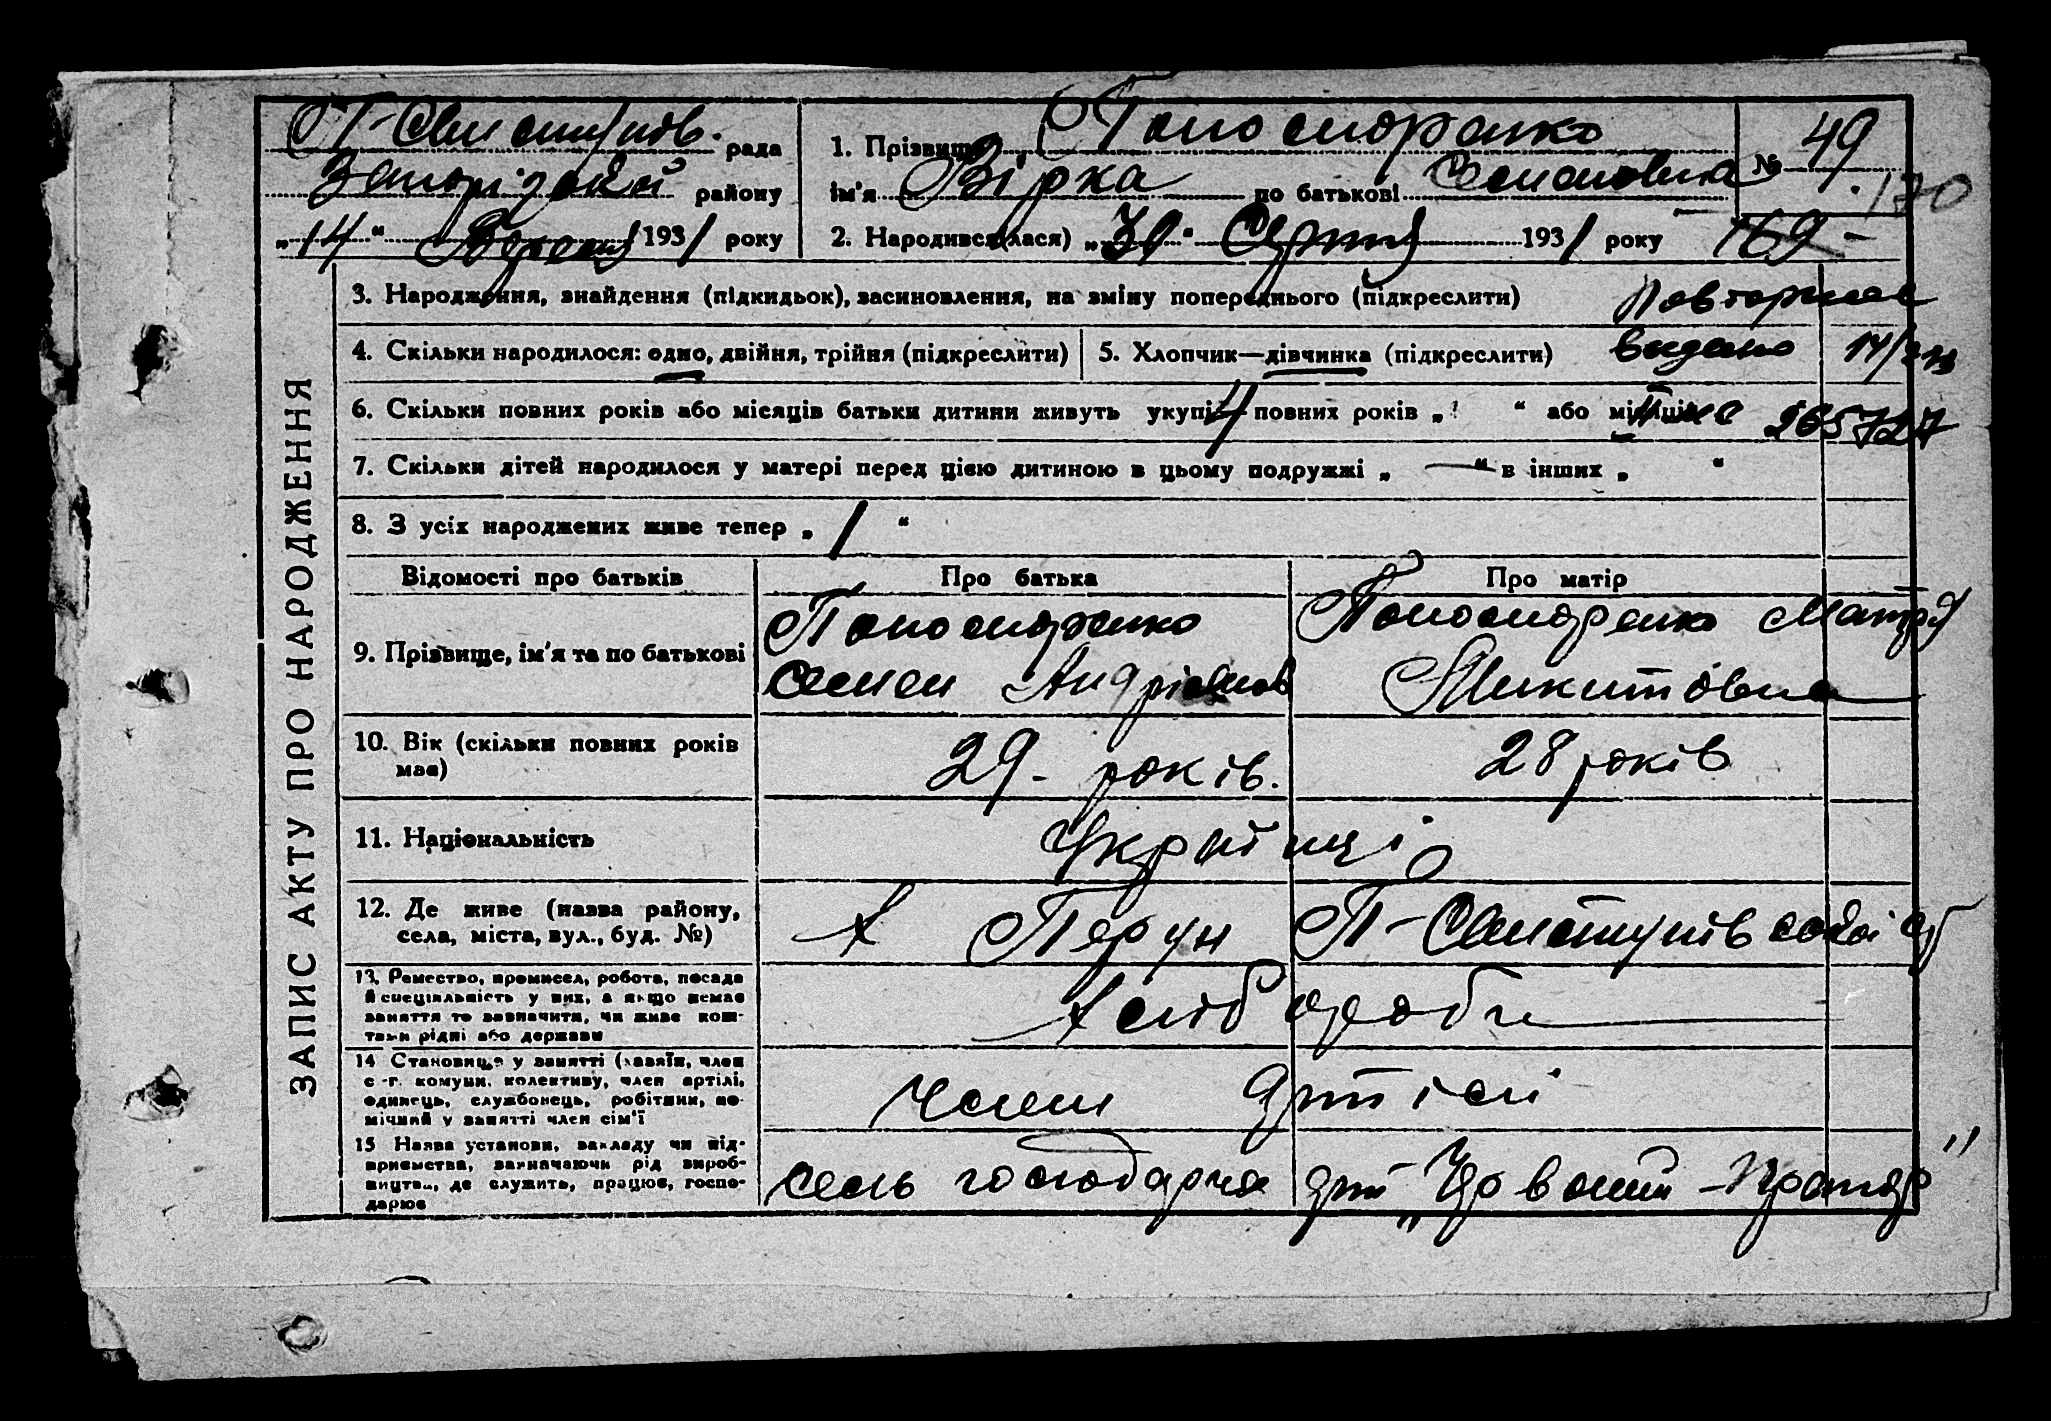 рада
Запорізький району
„14“ 1931 року
1. Прізвище Пономаренко
ім'я Вірка по батькові Семеновна № 49
170
2. Народився(лася) „ Серпня 1931 року 169
ЗАПИС АКТУ ПРО НАРОДЖЕННЯ
3. Народження, знайдення (підкидьок), засиновлення, на зміну попереднього (підкреслити) Повторное
4. Скільки народилося: одно, двійня, трійня (підкреслити) 5. Хлопчик—дівчинка (підкреслити) видано
6. Скільки повних років або місяців батьки дитини живуть укупі 4 повних років „ “ або місяців 265727
7. Скільки дітей народилося у матері перед цією дитиною в цьому подружжі „ — “ в інших „ “
8. З усіх народжених живе тепер „ 1 “
Відомості про батьків Про батька Про матір
9. Прізвище, ім'я та по батькові
Пономаренко
Семен
Пономаренко
Микитовна
10. Вік (скільки повних років
має)
29 - років. 28 років
11. Національність Українці
12. Де живе (назва району,
села, міста, вул., буд. №)
х Перун
13. Ремество, промисел, робота, посада
й специяльність у них, а якщо немає
заняття то зазначити, чи живе кош-
тами рідні або держави
Хлібороби
14 Становище у занятті (хазяїн, член
с.-г. комуни, колективу, член артілі,
одинець, службовець, робітник, по-
мічний у занятті член сім'ї
члени Артілі
15 Назва установи, закладу чи під-
приємства, зазначаючи рід вироб-
ництва, де служить, працює, госпо-
дарює
сель господарча арт „Червоний Прапор“